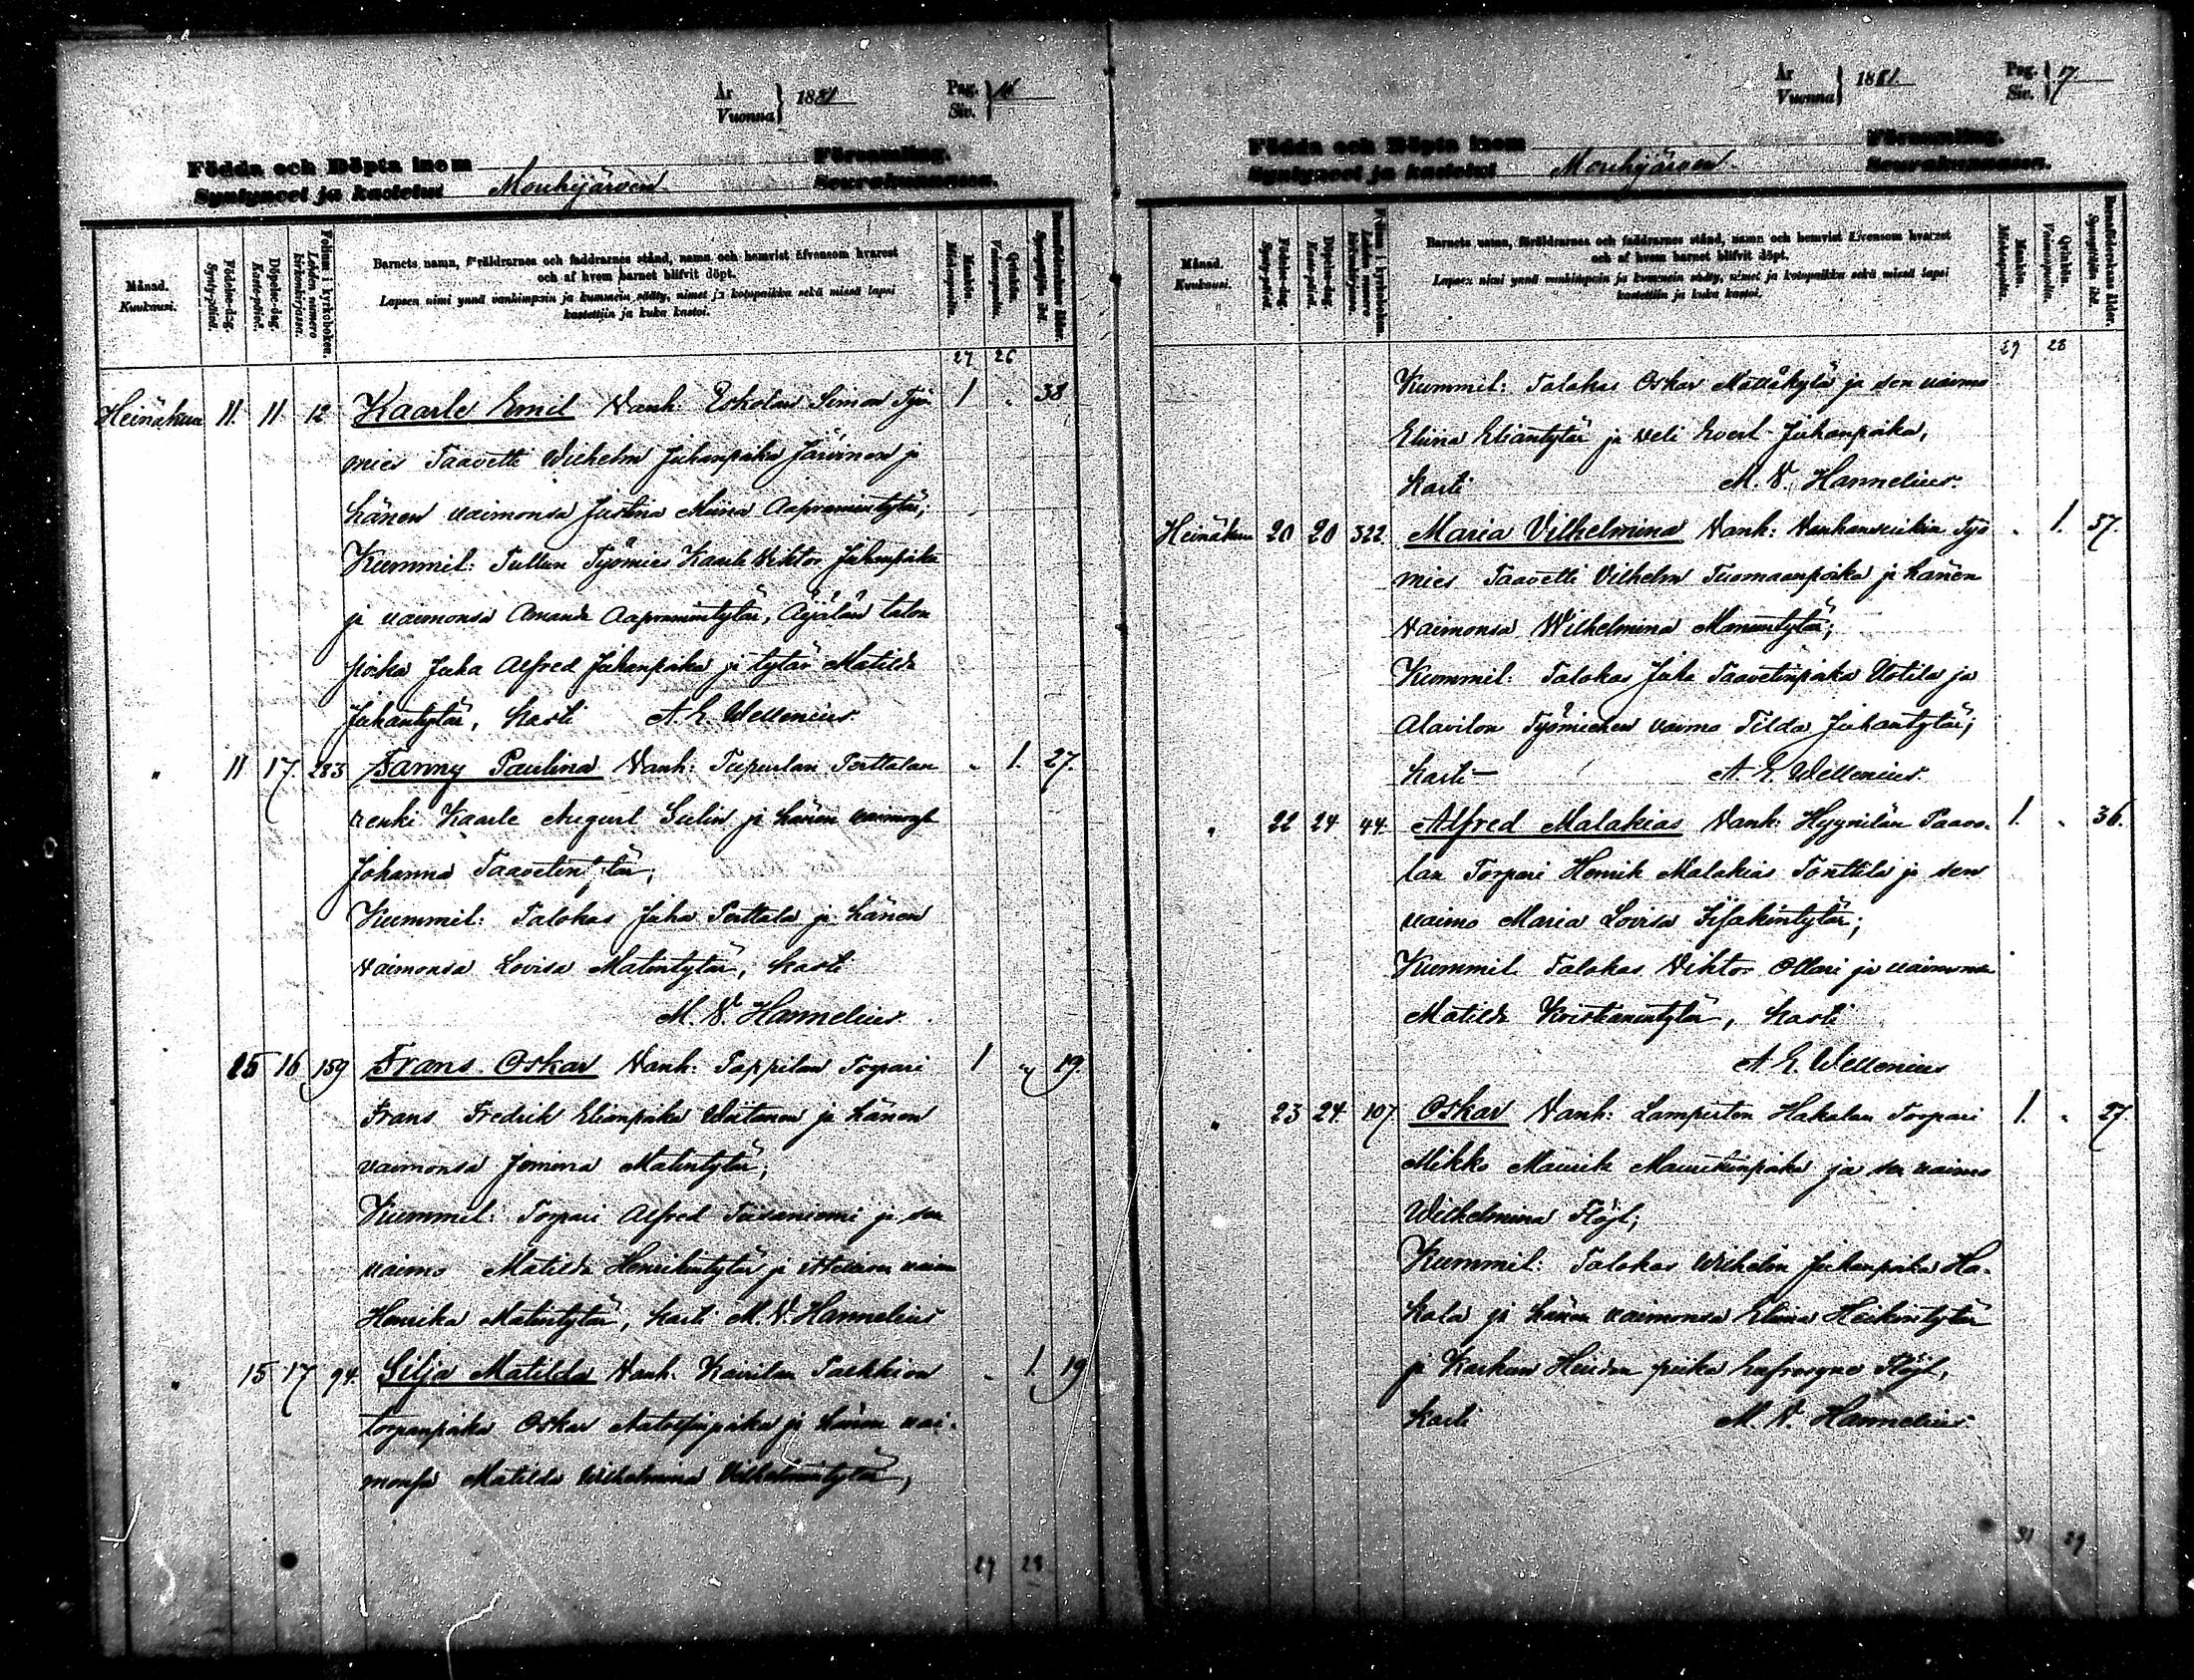 År
Vuonna } 1881
Pag.
Siv. } 16
Födda och Döpta inom Församling.
Syntyneet ja kastetut Mouhijärven Seurakunnassa.
Månad.
Kuukausi.
Födelse-dag.
Syntypäivä.
Döpelse-dag.
Kastepäivä.
Folium i kyrkoboken.
Lehden numero kirkonkirjassa.
Barnets namn, föräldrarnes och faddrarnes stånd, namn och hemvist äfvensom hvarest
och af hvem barnet blifvit döpt.
Lapsen nimi ynnä vanhimpain ja kummein sääty, nimet ja kotopaikka sekä missä lapsi
kastettiin ja kuka kastoi.
Mankön.
Miehenpuolia.
Qvinkön.
Vaimonpuolia.
Barnaföderskans ålder.
Synnyttäjän ikä.
27 26
Heinäkuu 11. 11. 12 Kaarle Emil Vanh: Eskolan Simon Työ- 1 „ 38
mies Taavetti Wilhelm Juhanpoika Järvinen ja
hänen vaimonsa Justina Miina Aapramintytär;
Kummit: Tullun Työmies Kaarle Wiktor Juhanpoika
ja vaimonsa Amanda Aapramintytär, Äijälän talon
poika Juha Alfred Juhanpoika ja tytär Matilda
Juhantytär, kasti A. E. Wellenius.
„ 11 17. 283 Fanny Paulina Vanh: Tupurlan Perttalan „ 1. 27.
renki Kaarle August Gelin ja hänen vaimonsa
Johanna Taavetintytär;
Kummit: Talokas Juha Perttala ja hänen
vaimonsa Lovisa Matintytär, kasti
M. V. Hannelius.
15 16 159 Frans Oskar Vanh: Pappilan Torpari 1 „ 19.
Frans Fredrik Elianpoika Woitanen ja hänen
vaimonsa Jemina Matintytär;
Kummit: Torpari Alfred Tiisanniemi ja sen
vaimo Matilda Henrikintytär ja vaimo
Henrika Matintytär, kasti M. V. Hannelius
„ 15 17 94. Silja Matilda Vanh: Kairilan Pakkion „ 1. 19
torpanpoika Oskar Antoffinpoika ja hänen vai-
monsa Matilda Wilhelmina Vilhelmintytär,
29 28
År
Vuonna } 1881.
Pag.
Siv. } 17
Födda och Döpta inom Församling.
Syntyneet ja kastetut Mouhijärven Seurakunnassa.
Månad.
Kuukausi.
Födelse-dag.
Syntypäivä.
Döpelse-dag.
Kastepäivä.
Folium i kyrkoboken.
Lehden numero kirkonkirjassa.
Barnets namn, föräldrarnes och faddrarnes stånd, namn och hemvist äfvensom hvarest
och af hvem barnet blifvit döpt.
Lapsen nimi ynnä vanhimpain ja kummein sääty, nimet ja kotopaikka sekä missä lapsi
kastettiin ja kuka kastoi.
Mankön.
Miehenpuolia.
Qvinkön.
Vaimonpuolia.
Barnaföderskans ålder.
Synnyttäjän ikä.
29 28
Kummit: Talokas Oskar Mattäkylä ja sen vaimo
Eliina Eliantytär ja veli Evert Juhanpoika,
kasti M. V. Hannelius.
Heinäkuu 20 20 322. Maria Vilhelmina Vanh: Vanhainhuikin Työ „ 1. 37.
mies Taavetti Vilhelm Tuomaanpoika ja hänen
vaimonsa Wilhelmina Manuntytär;
Kummit: Talokas Juha Taavetinpoika Uotila ja
Alavilon Työmiehen vaimo Tilda Juhantytär;
kasti A. E. Wellenius.
„ 22 24. 44. Alfred Malakias Vanh: Hyynilän Paavo- 1. „ 36.
lan Torpari Henrik Malakias Tonttila ja sen
vaimo Maria Lovisa Iisakintytär;
Kummit Talokas Wiktor Ollari ja vaimonsa
Matilda Kristianintytär, kasti
A. E. Wellenius
„ 23 24. 107 Oskar Vanh: Lampisten Hakalan Torpari 1. „ 27.
Mikko Maurik Mauritsinpoika ja sen vaimo
Wilhelmina Flöjt;
Kummit: Talokas Wilhelm Juhanpoika Ha-
kala ja hänen vaimonsa Eliina Heikintytär
ja Karkun poika Flöjt,
kasti M. V. Hannelius.
31 29